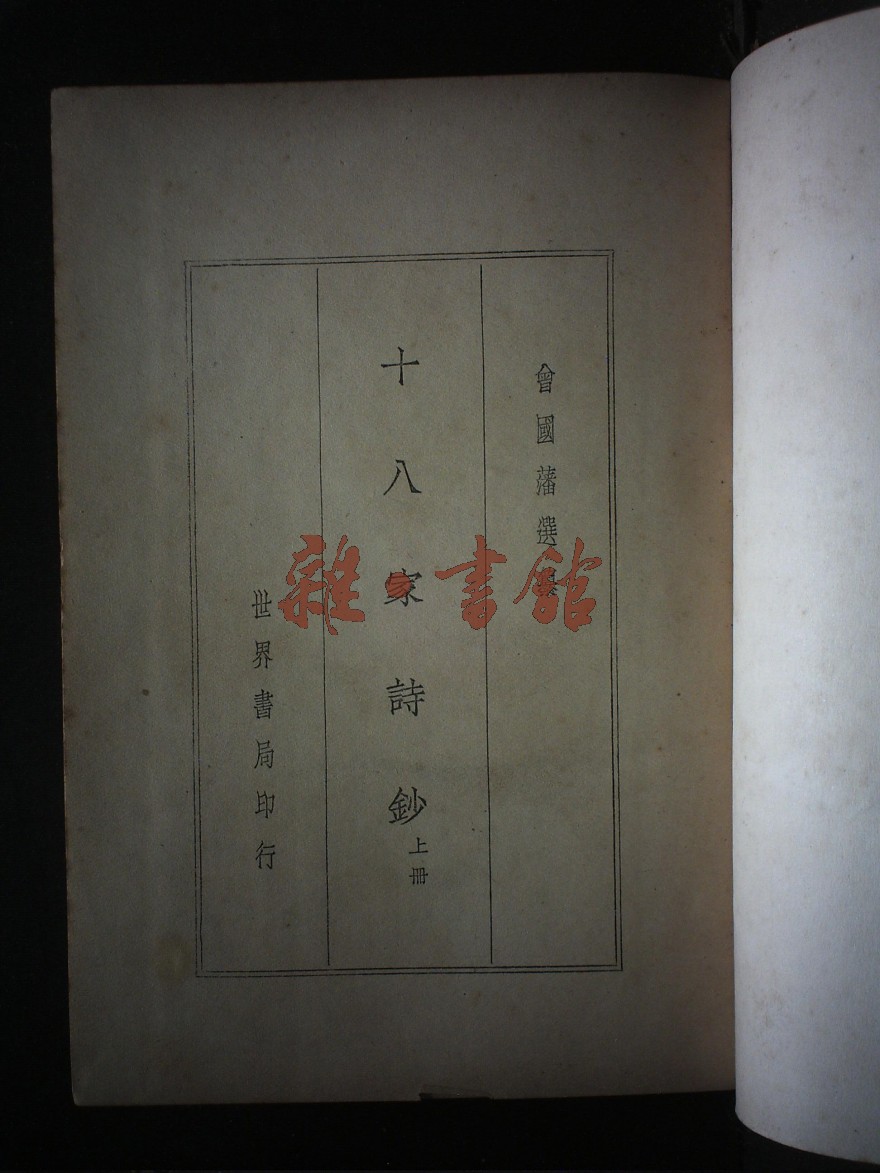 曾國藩選
十八家詩鈔
上冊
世界書局印行
雜·書館